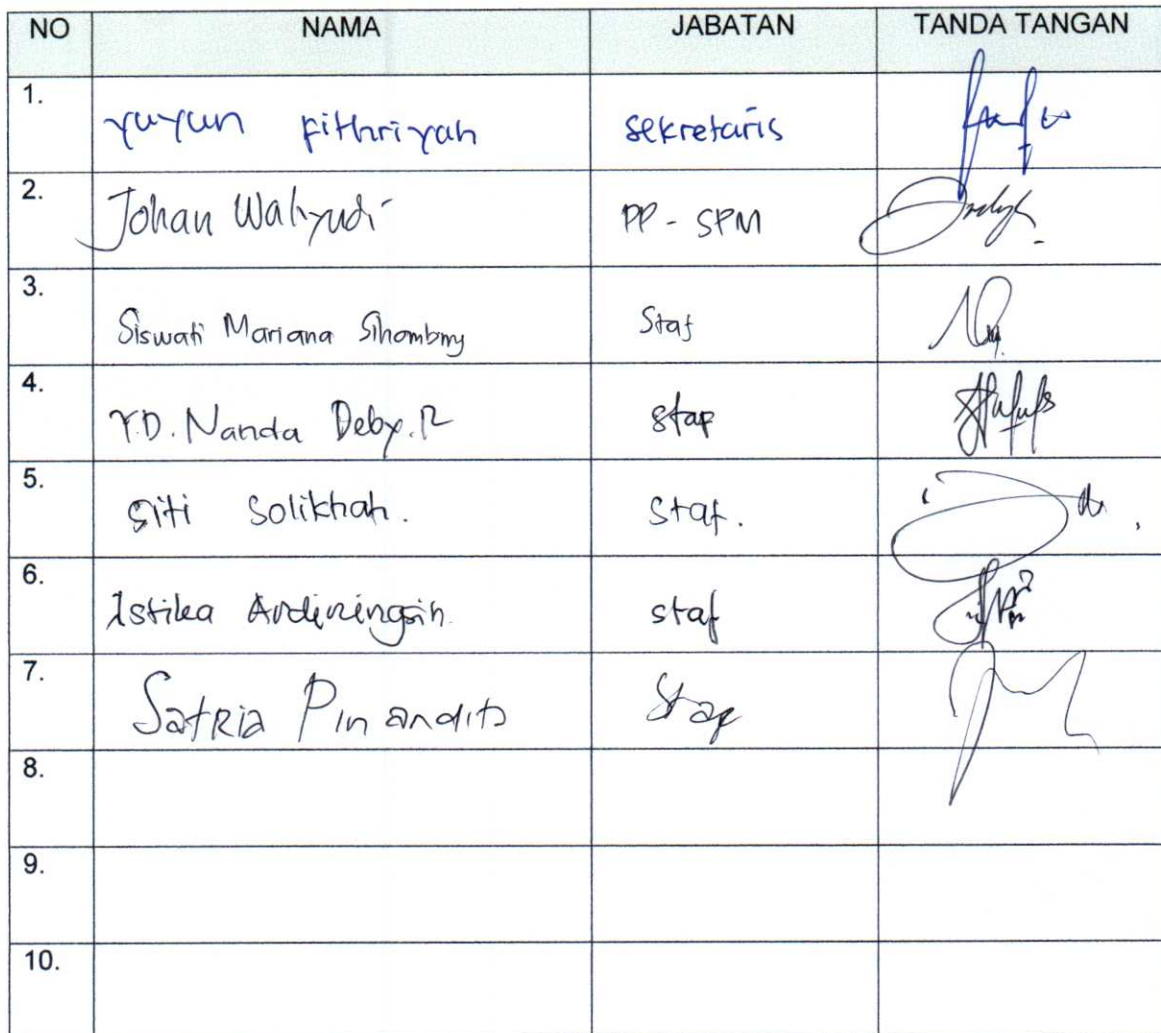 NO NAMA JABATAN TANDA TANGAN
1. Yuyun Fithriyah sekretaris
2. Johan Wahyudi PP - SPM
3. Siswati Mariana Sihombing Staf
4. Y.D. Nanda Deby.R staf
5. Siti Solikhah. Staf.
6. Istika Ardiningsih staf
7. Satria Pinandito Staf
8.
9.
10.